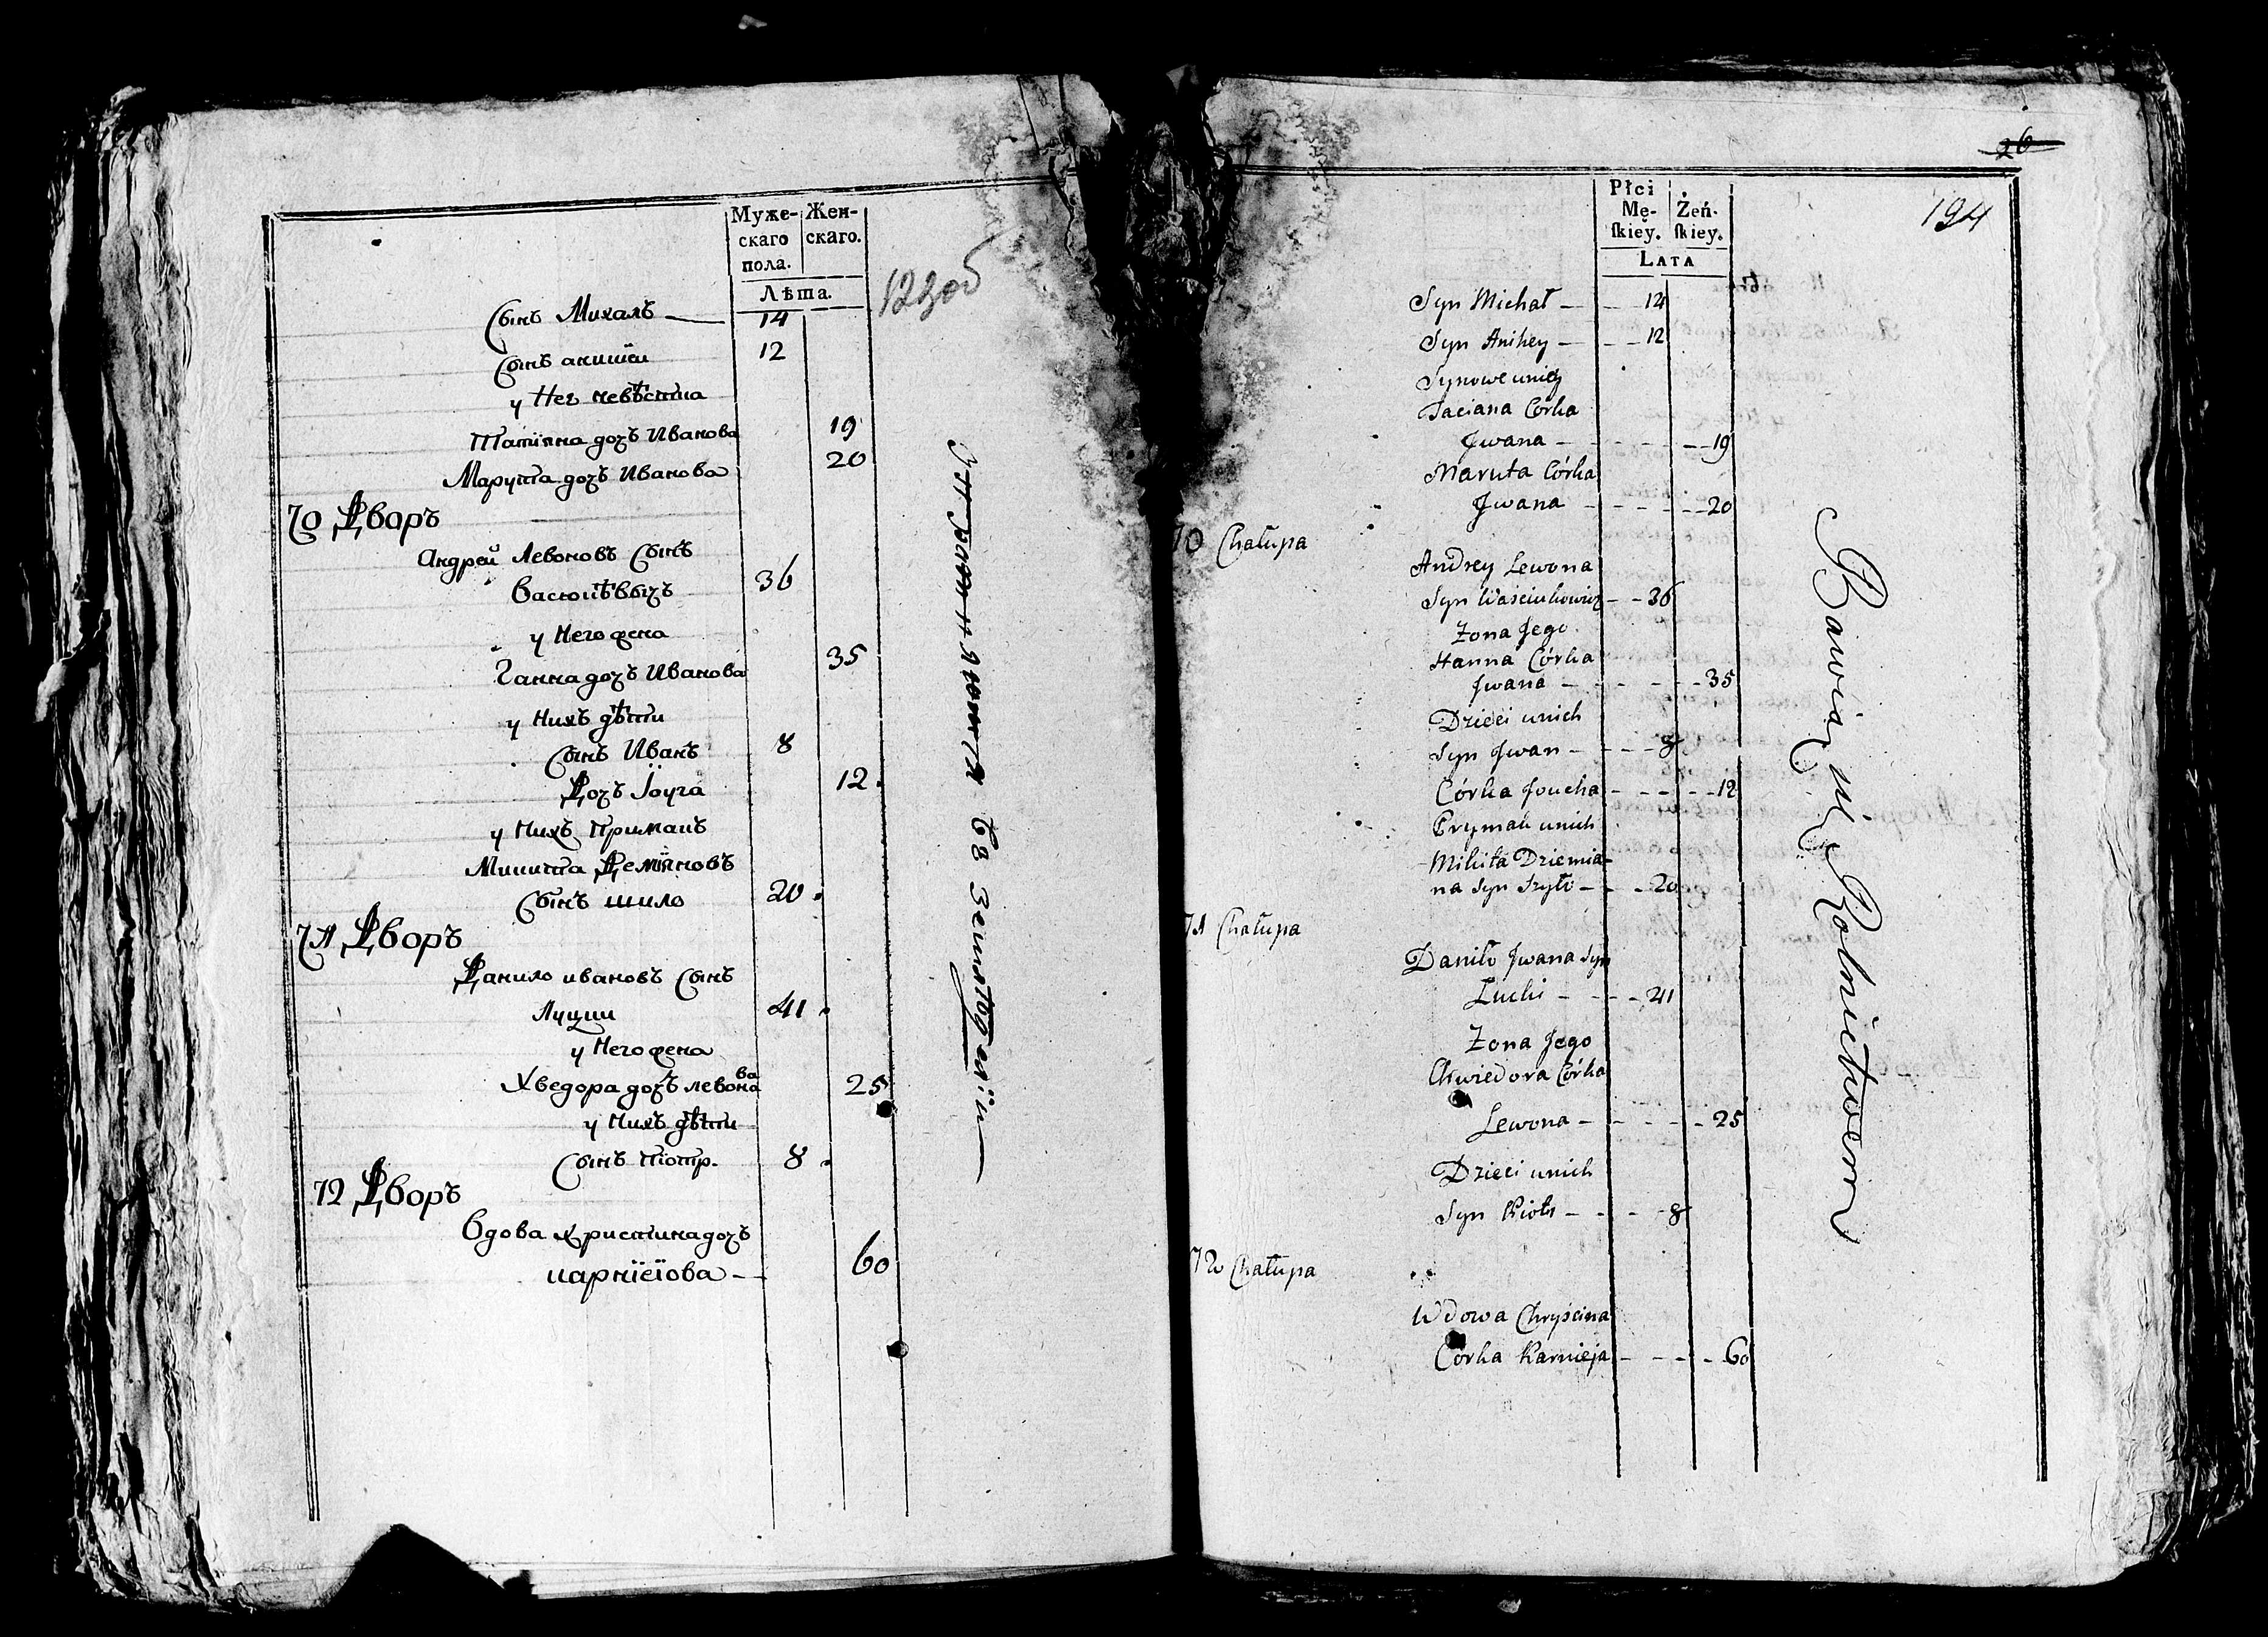 Муже-
скаго
пола.
Жен-
скаго.
Лѣта.
Сынъ Михалъ — 14
Сынъ аникѣи 12
у Нег невѣстка
Татіяна дочъ Иванова 19
Марута дочъ Иванова 20
70 Дворъ
Андрей Левоновъ Сынъ
Васюкѣвычъ 36
у Него жена
Ганна дочъ Иванова 35
у Нихъ дѣти
Сынъ Иванъ 8
Дочъ Іоуга 12
у Нихъ Примакъ
Микита Деміяновъ
Сынъ шило 20
71 Дворъ
Данило ивановъ Сынъ
Луцки 41
у Него жена
Хведора дочъ левонова 25
у Нихъ дѣти
Сынъ Піотр. 8
72 Дворъ
Вдова Христина дочъ
карніеіова 60
въ земледеліи
26
194
Płci
Mę-
skiey.
Żeń-
skiey.
LATA
Syn Michał — 14
Syn Anikey — 12
Synowe unieg
Taciana Córka
Jwana — 19
Maruta Córka
Jwana — 20
70 Chałupa
Andrey Lewona
Syn Waściukowicz — 36
Żona Jego
Hanna Córka
Jwana — 35
Dzieci unich
Syn Jwan — 8
Córka Joucha — 12
Prymak unich
Mikita Dziemia-
na Syn Szyło — 20
71 Chałupa
Daniło Jwana Syn
Łucki — 41
Żona Jego
Chwiedora Córka
Lewona — 25
Dzieci unich
Syn Piotr — 8
72 Chałupa
Wdowa Chryścina
Córka Karnieja — 60
Bawią się Rolnictwem